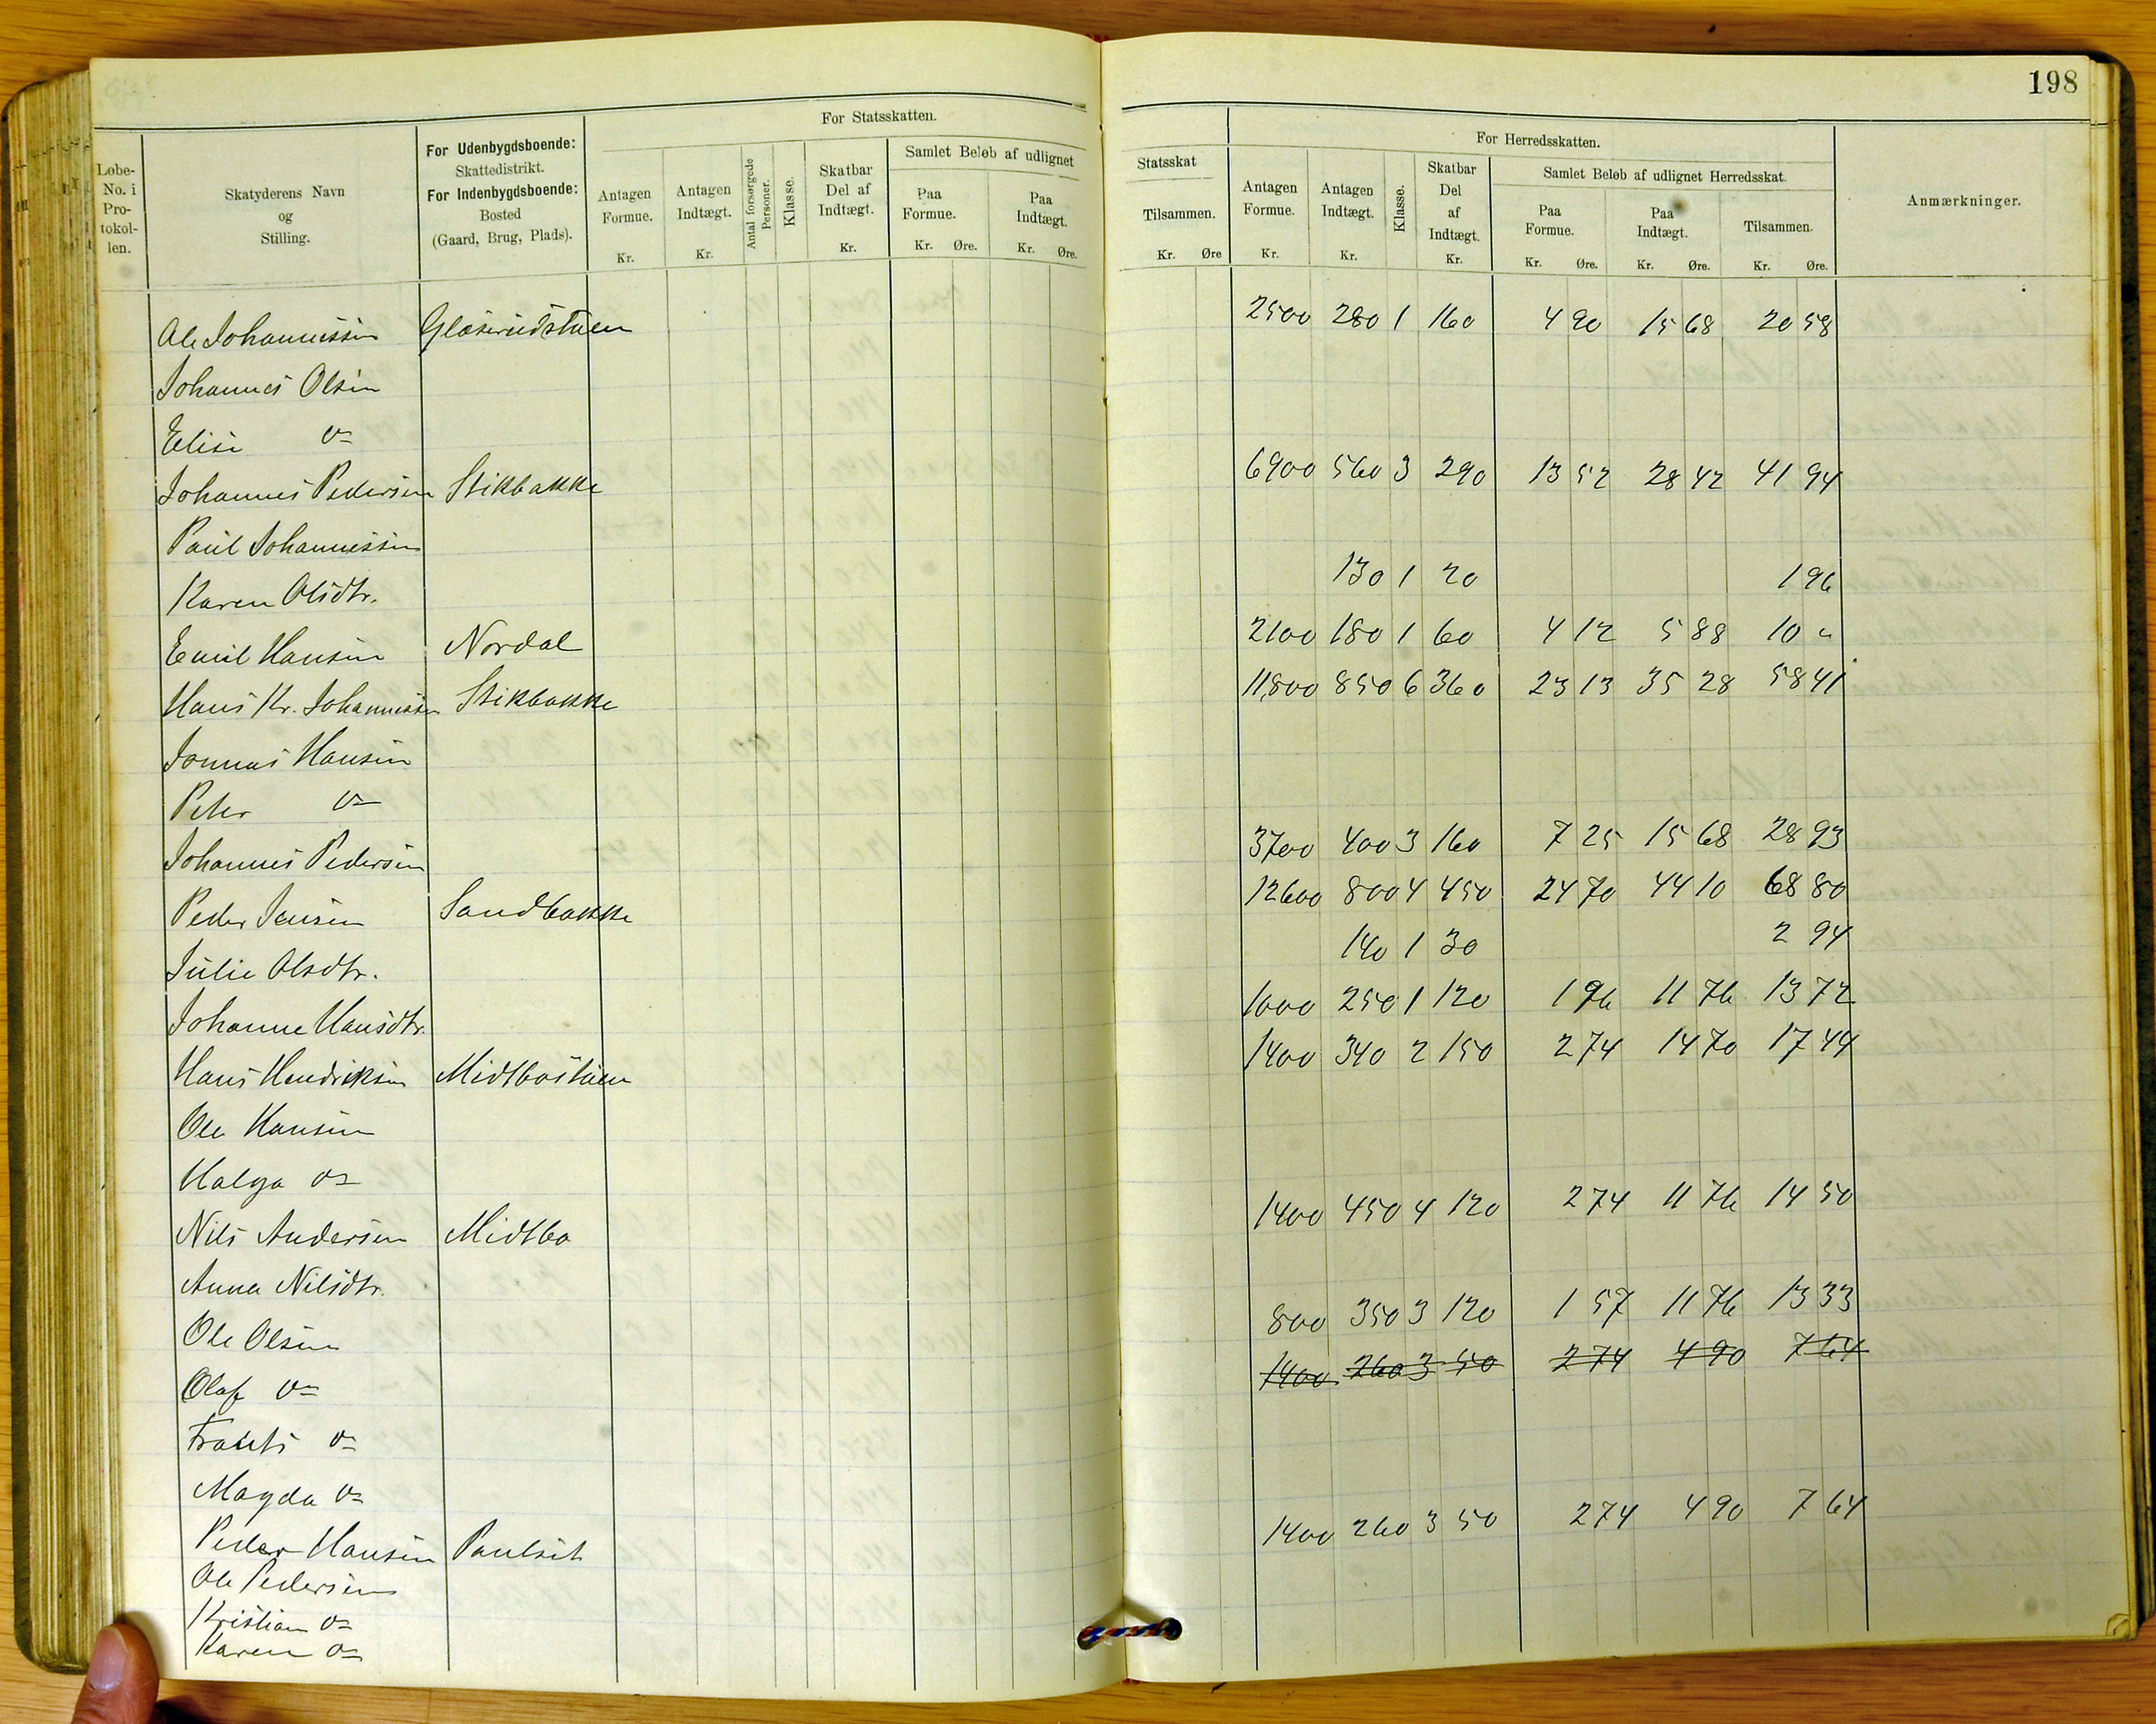 198
For Statsskatten.
Løbe-No. i Pro-tokol-len.
Skatyderens Navn og Stilling.
For Udenbygdsboende: Skattedistrikt. For Indenbygdsboende: Bosted (Gaard, Brug, Plads).
Antagen Formue. Kr.
Antagen Indtægt. Kr.
Antal forsørgede Personer.
Klasse.
Skatbar Del af Indtægt. Kr.
Samlet Beløb af udlignet
Paa Formue. Kr. Øre.
Paa Indtægt. Kr. Øre.
Statsskat
Tilsammen. Kr. Øre
For Herredsskatten.
Antagen Formue. Kr.
Antagen Indtægt. Kr.
Klasse.
Skatbar Del af Indtægt. Kr.
Samlet Beløb af udlignet Herredsskat.
Paa Formue. Kr. Øre.
Paa Indtægt. Kr. Øre.
Tilsammen. Kr. Øre.
Anmærkninger.
Ole Johannessen Glæserudstuen 2500 280 1 160 4 90 15 68 20 58
Johannes Olsen
Elise do
Johannes Pedersen Stikbakke 6900 560 3 290 13 52 28 42 41 94
Paul Johannessen
Karen Olsdtr. 130 1 20 1 96
Emil Hansen Nordal 2100 180 1 60 4 12 5 88 10 "
Hans Kr. Johannessen Stikbakke 11,800 850 6 360 23 13 35 28 58 41
Jonnas Hansen
Peter do
Johannes Pedersen 3700 400 3 160 7 25 15 68 28 93
Peder Jensen Sandbakke 12600 800 4 450 24 70 44 10 68 80
Julie Olsdtr. 140 1 30 2 94
Johanne Hansdtr. 1000 250 1 120 1 96 11 76 13 72
Hans Hendriksen Midtbøstuen 1400 340 2 150 2 74 14 70 17 44
Ole Hansen
Halga do
Nils Andersen Midtbø 1400 450 4 120 2 74 11 76 14 50
Anna Nilsdtr.
Ole Olsen 800 350 3 120 1 57 11 76 13 33
Olaf do 1400 260 3 50 2 74 4 90 7 64
Frants do
Magda do
Peder Hansen Paulset 1400 260 3 50 2 74 4 90 7 64
Ole Pedersen
Kristian do
Karen do